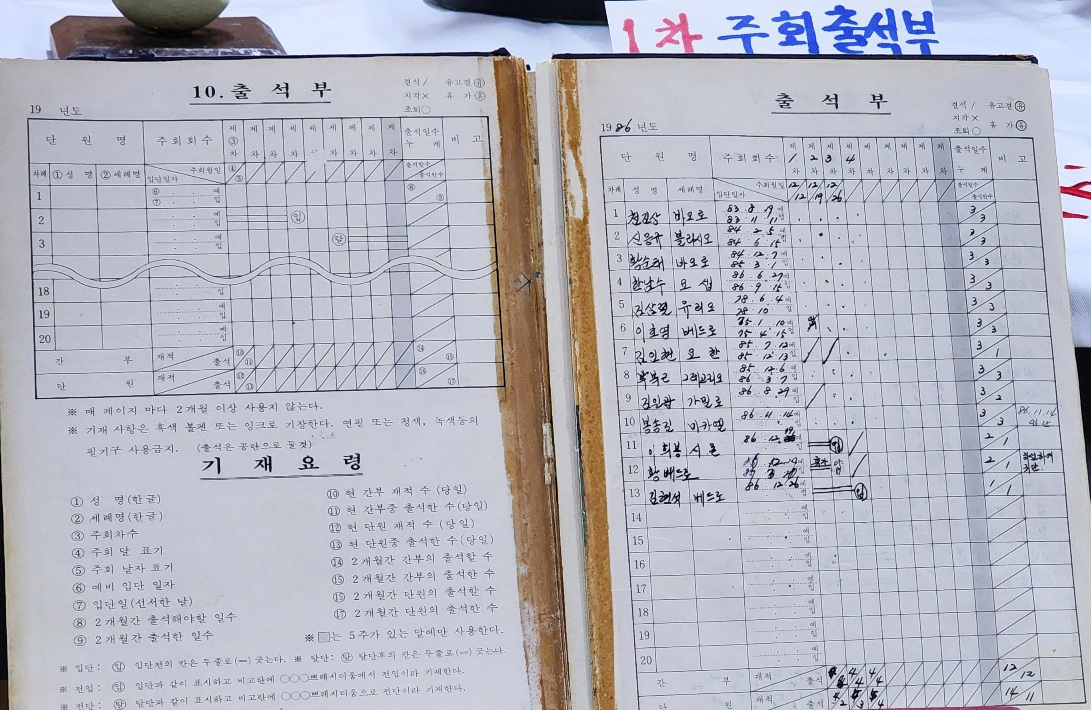 1차 주회출석부
10. 출 석 부
결석 / 유고결 ㊌
지각 × 휴 가 ㊌
조퇴 ○
19 년도
단 원 명 주 회 회 수 제 ③ 차 제 차 제 차 제 차 제 차 제 차 제 차 제 차 제 차 출석일수 누 계 비 고
차례 ① 성 명 ② 세례명 주회월일 입단일자 ④ ⑤ 출석할수 출석한수
1 ⑥ 예 ⑦ 입 ⑧ ⑨
2 예 입
3 예 입
18 입
19 예 입
20 예 입
간 부 재적 출석 ⑩ ⑪ ⑭ ⑮
단 원 재적 출석 ⑫ ⑬ ⑯ ⑰
※ 매 페이지 마다 2개월 이상 사용치 않는다.
※ 기재 사항은 흑색 볼펜 또는 잉크로 기장한다. 연필 또는 청색, 녹색등의
필기구 사용금지. (출석은 공란으로 둘것)
기 재 요 령
① 성 명(한글)
② 세례명(한글)
③ 주회차수
④ 주회 달 표기
⑤ 주회 날자 표기
⑥ 예비 입단 일자
⑦ 입단일(선서한 날)
⑧ 2개월간 출석해야할 일수
⑨ 2개월간 출석한 일수
⑩ 현 간부 재적 수 (당일)
⑪ 현 간부중 출석한 수(당일)
⑫ 현 단원 재적 수 (당일)
⑬ 현 단원중 출석한 수(당일)
⑭ 2개월간 간부의 출석할 수
⑮ 2개월간 간부의 출석한 수
⑮ 2개월간 단원의 출석할 수
⑰ 2개월간 단원의 출석한 수
※ □는 5주가 있는 달에만 사용한다.
※ 입단: 입단전의 칸은 두줄로(=) 긋는다. ※ 탈단: 탈단후의 칸은 두줄로(=) 긋는다.
※ 전입: 입단과 같이 표시하고 비고란에 ○○○쁘레시디움에서 전입이라 기재한다.
※ 전단: 탈단과 같이 표시하고 비고란에 ○○○쁘레시디움으로 전단이라 기재한다.
출 석 부
결석 / 유고결
지각 × 휴 가
조퇴 ○
19 86 년도
단 원 명 주 회 회 수 제 1 차 제 2 차 제 3 차 제 4 차 제 차 제 차 제 차 제 차 제 차 출석일수 누 계 비 고
차례 성 명 세례명 주회월일 입단일자 12/12 12/19 12/26 출석할수 출석한수
1 바오로 83. 8. 19 예 83. 11. 11 입 3/3
2 신용규 블라시오 84. 2. 5 예 84. 6. 15 입 3/3
3 바오로 84. 12. 7 예 85. 3. 1 입 3/3
4 한남수 요셉 86. 6. 27 예 86. 9. 15 입 3/3
5 유리오 78. 6. 4 예 78. 10 입 3/3
6 이호영 베드로 75. 1. 10 예 75. 4. 15 입 3/3
7 요한 85. 9. 12 예 85. 12. 13 입 3/1
8 그레고리오 85. 12. 6 예 86. 3. 7 입 3/3
9 가밀로 86. 8. 29 예 입 3/2
10 미카엘 86. 11. 14 예 입 3/3 86. 11. 14
11 이희봉 시몬 86. 12. 19 예 입 2/1
12 황베드로 예 입 2/1
13 김현석 베드로 86. 12. 26 예 입 1/1
14 예 입
15 예 입
16 예 입
17 예 입
18 예 입
19 예 입
20 예 입
간 부 재적 출석 4/4 4/4 4/4 12/12
단 원 재적 출석 14/11